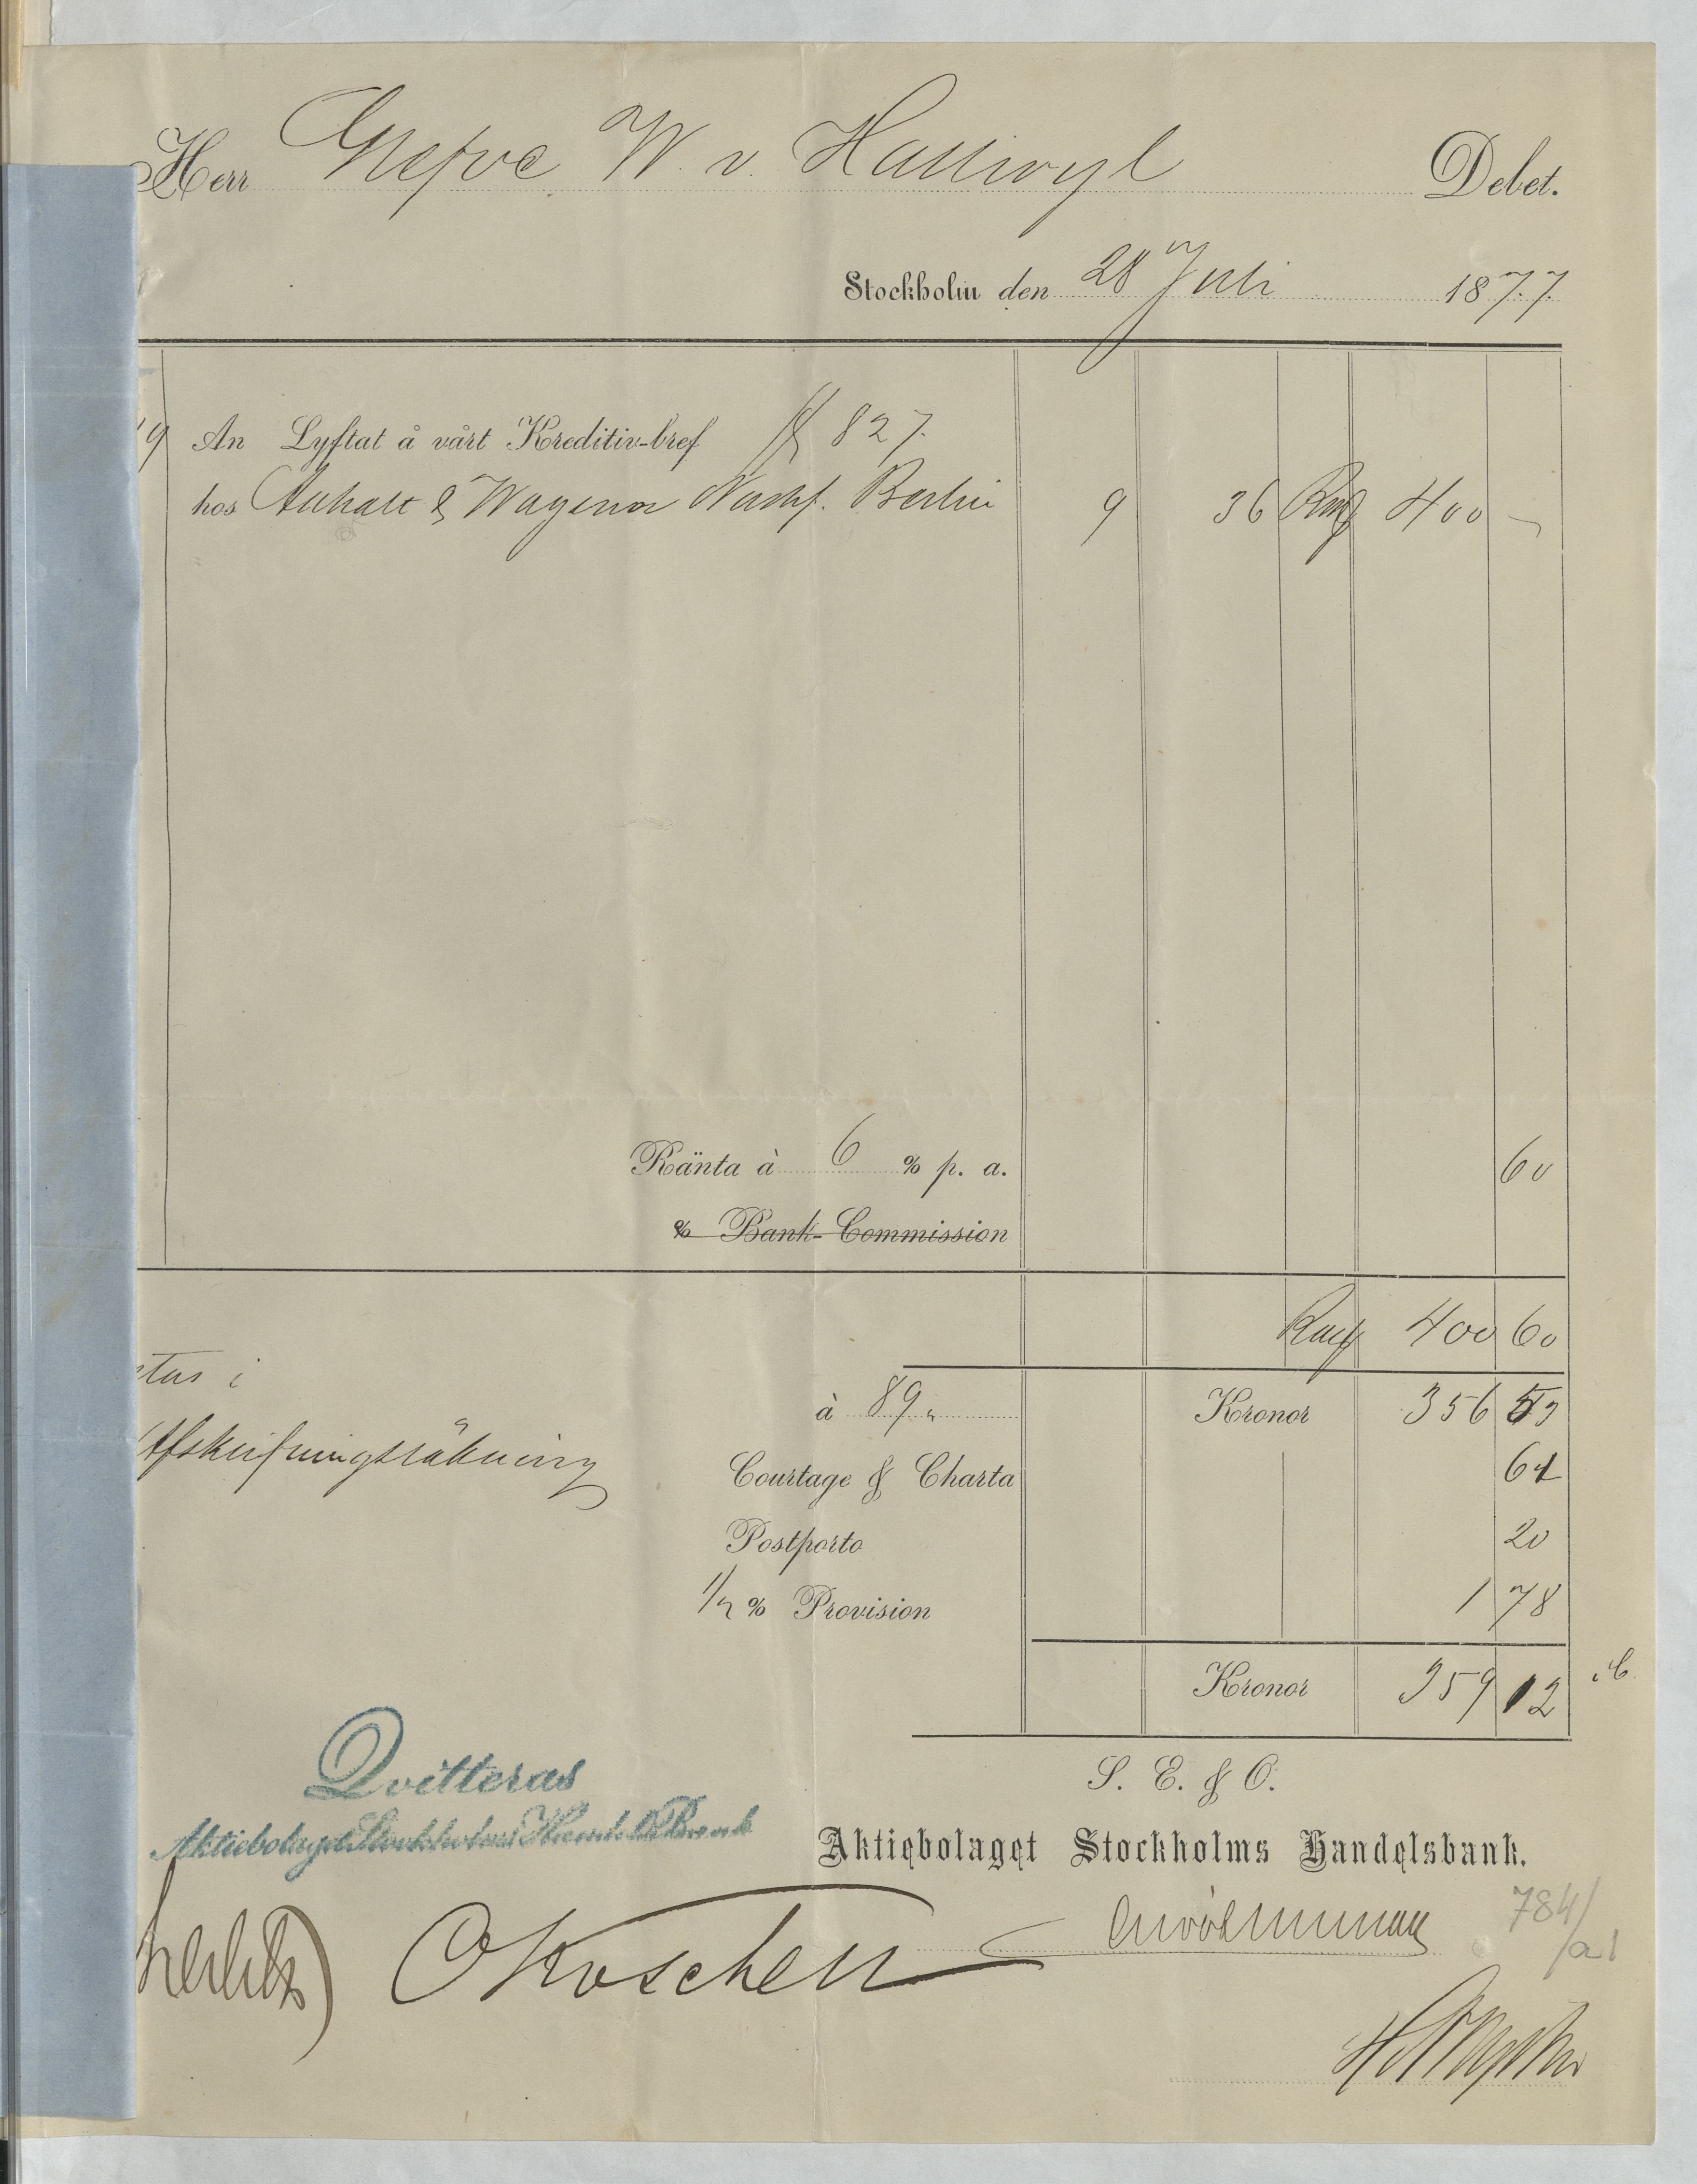 Herr Grefve W. v. Hallwyl Debet.
Stockholm den 28 Juli 1877.
19 An Lyftat å vårt Kreditiv-bref № 827.
hos Anhalt & Wagener Nachf. Berlin 9 36 Rmk 400 —
Ränta à 6 % p. a. 60
% Bank-Commission
Rmk 400 60
à 89 „ Kronor 356 53
Afskrifningsräkning
Courtage & Charta 61
Postporto 20
1/2 % Provision 1 78
Kronor 359 12
Qvitteras
Aktiebolaget Stockholms Handels Bank
S. E. & O.
Aktiebolaget Stockholms Handelsbank.
OKoschell
784/
a1